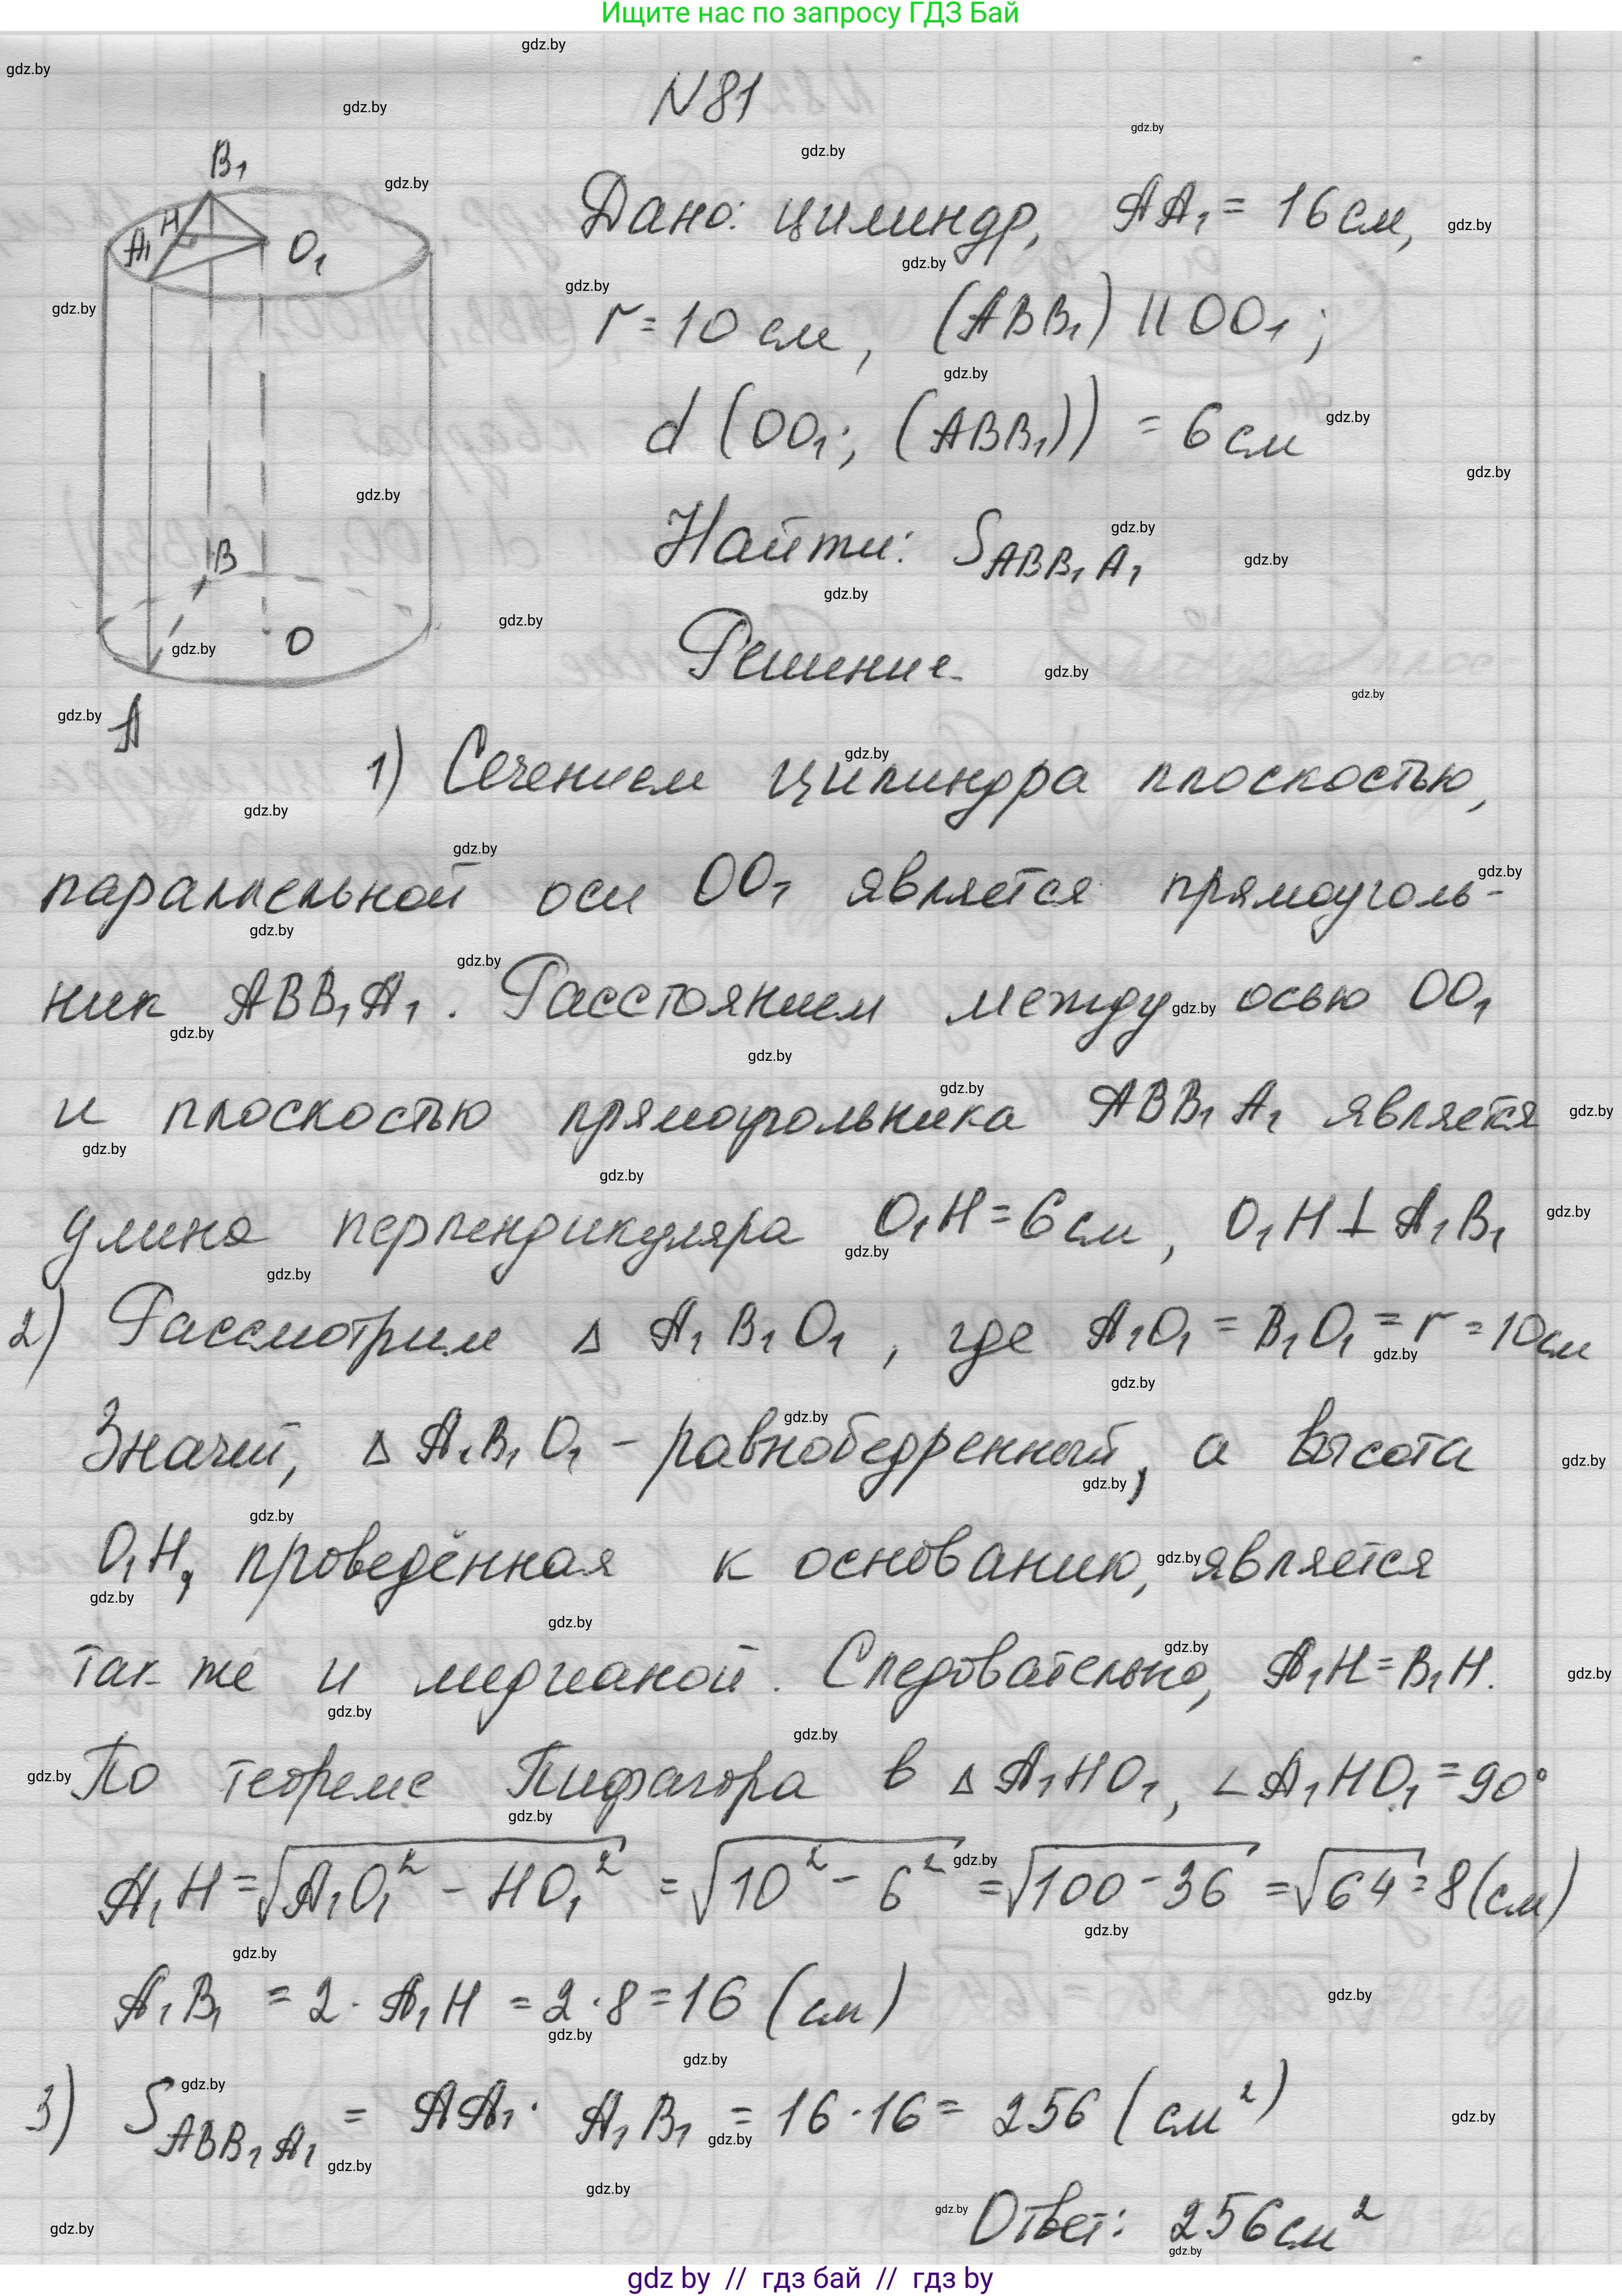 Ищите нас по запросу ГДЗ Бай
N81
Дано: цилиндр, AA₁ = 16 см,
r = 10 см, (ABB₁) || OO₁;
d (OO₁; (ABB₁)) = 6 см
Найти: S ABB₁A₁
Решение.
B₁
H
A₁
O₁
B
O
A
1) Сечением цилиндра плоскостью,
параллельной оси OO₁ является прямоуголь-
ник ABB₁A₁. Расстоянием между осью OO₁
и плоскостью прямоугольника ABB₁A₁ является
длина перпендикуляра O₁H = 6 см, O₁H ⊥ A₁B₁
2) Рассмотрим Δ A₁B₁O₁, где A₁O₁ = B₁O₁ = r = 10 см
Значит, Δ A₁B₁O₁ - равнобедренный, а высота
O₁H, проведённая к основанию, является
так же и медианой. Следовательно, A₁H = B₁H.
По теореме Пифагора в Δ A₁HO₁, ∠A₁HO₁ = 90°
A₁H = √(A₁O₁² - HO₁²) = √(10² - 6²) = √(100 - 36) = √64 = 8 (см)
A₁B₁ = 2 · A₁H = 2 · 8 = 16 (см)
3) S ABB₁A₁ = AA₁ · A₁B₁ = 16 · 16 = 256 (см²)
Ответ: 256 см²
gdz by // гдз бай // гдз by